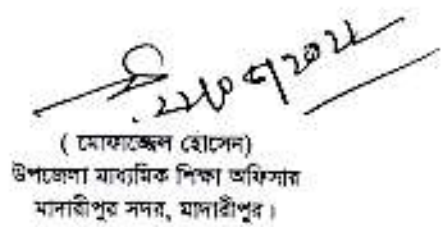 ( মোফাজ্জেল হোসেন)
উপজেলা মাধ্যমিক শিক্ষা অফিসার
মাদারীপুর সদর, মাদারীপুর।